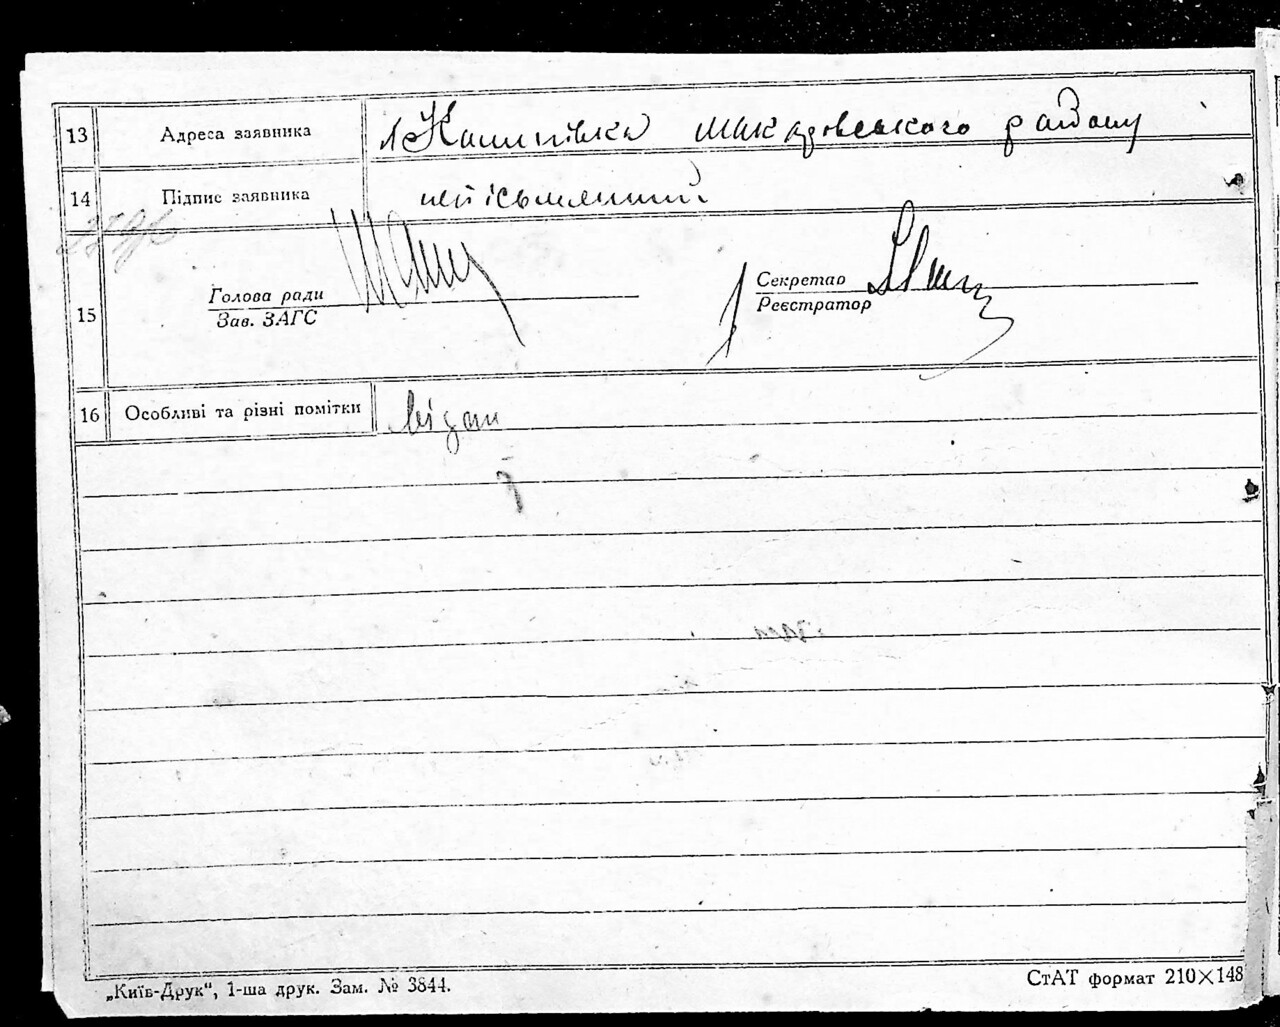 13 Адреса заявника Макаровського району
14 Підпис заявника неписьменний
15 Голова ради Секретар
Зав. ЗАГС Реєстратор
16 Особливі та різні помітки
„Київ-Друк“, 1-ша друк. Зам. № 3844. СтАТ формат 210×148